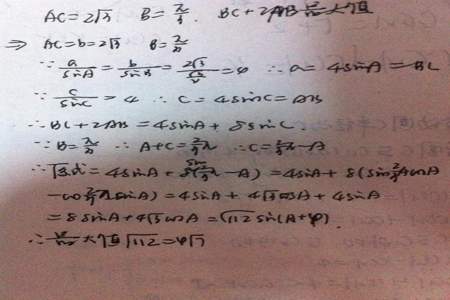 AC=2√3 B=π/3. BC+2AB最大值
⇒ AC=b=2√3 B=π/3
∵ a/sinA = b/sinB = 2√3/(√3/2) = 4 ∴ a=4sinA=BC
∵ c/sinC = 4 ∴ C=4sinC=AB
∴ BC+2AB=4sinA+8sinC.
∵ B=π/3 ∴ A+C=2/3π ∴ C=2/3π-A
∴ 原式=4sinA+8sin(2/3π-A)=4sinA+8(sin2/3πcosA
-cos2/3πsinA)=4sinA+4√3cosA+4sinA
=8sinA+4√3cosA=√112 sin(A+φ).
∴ 最大值√112=4√7